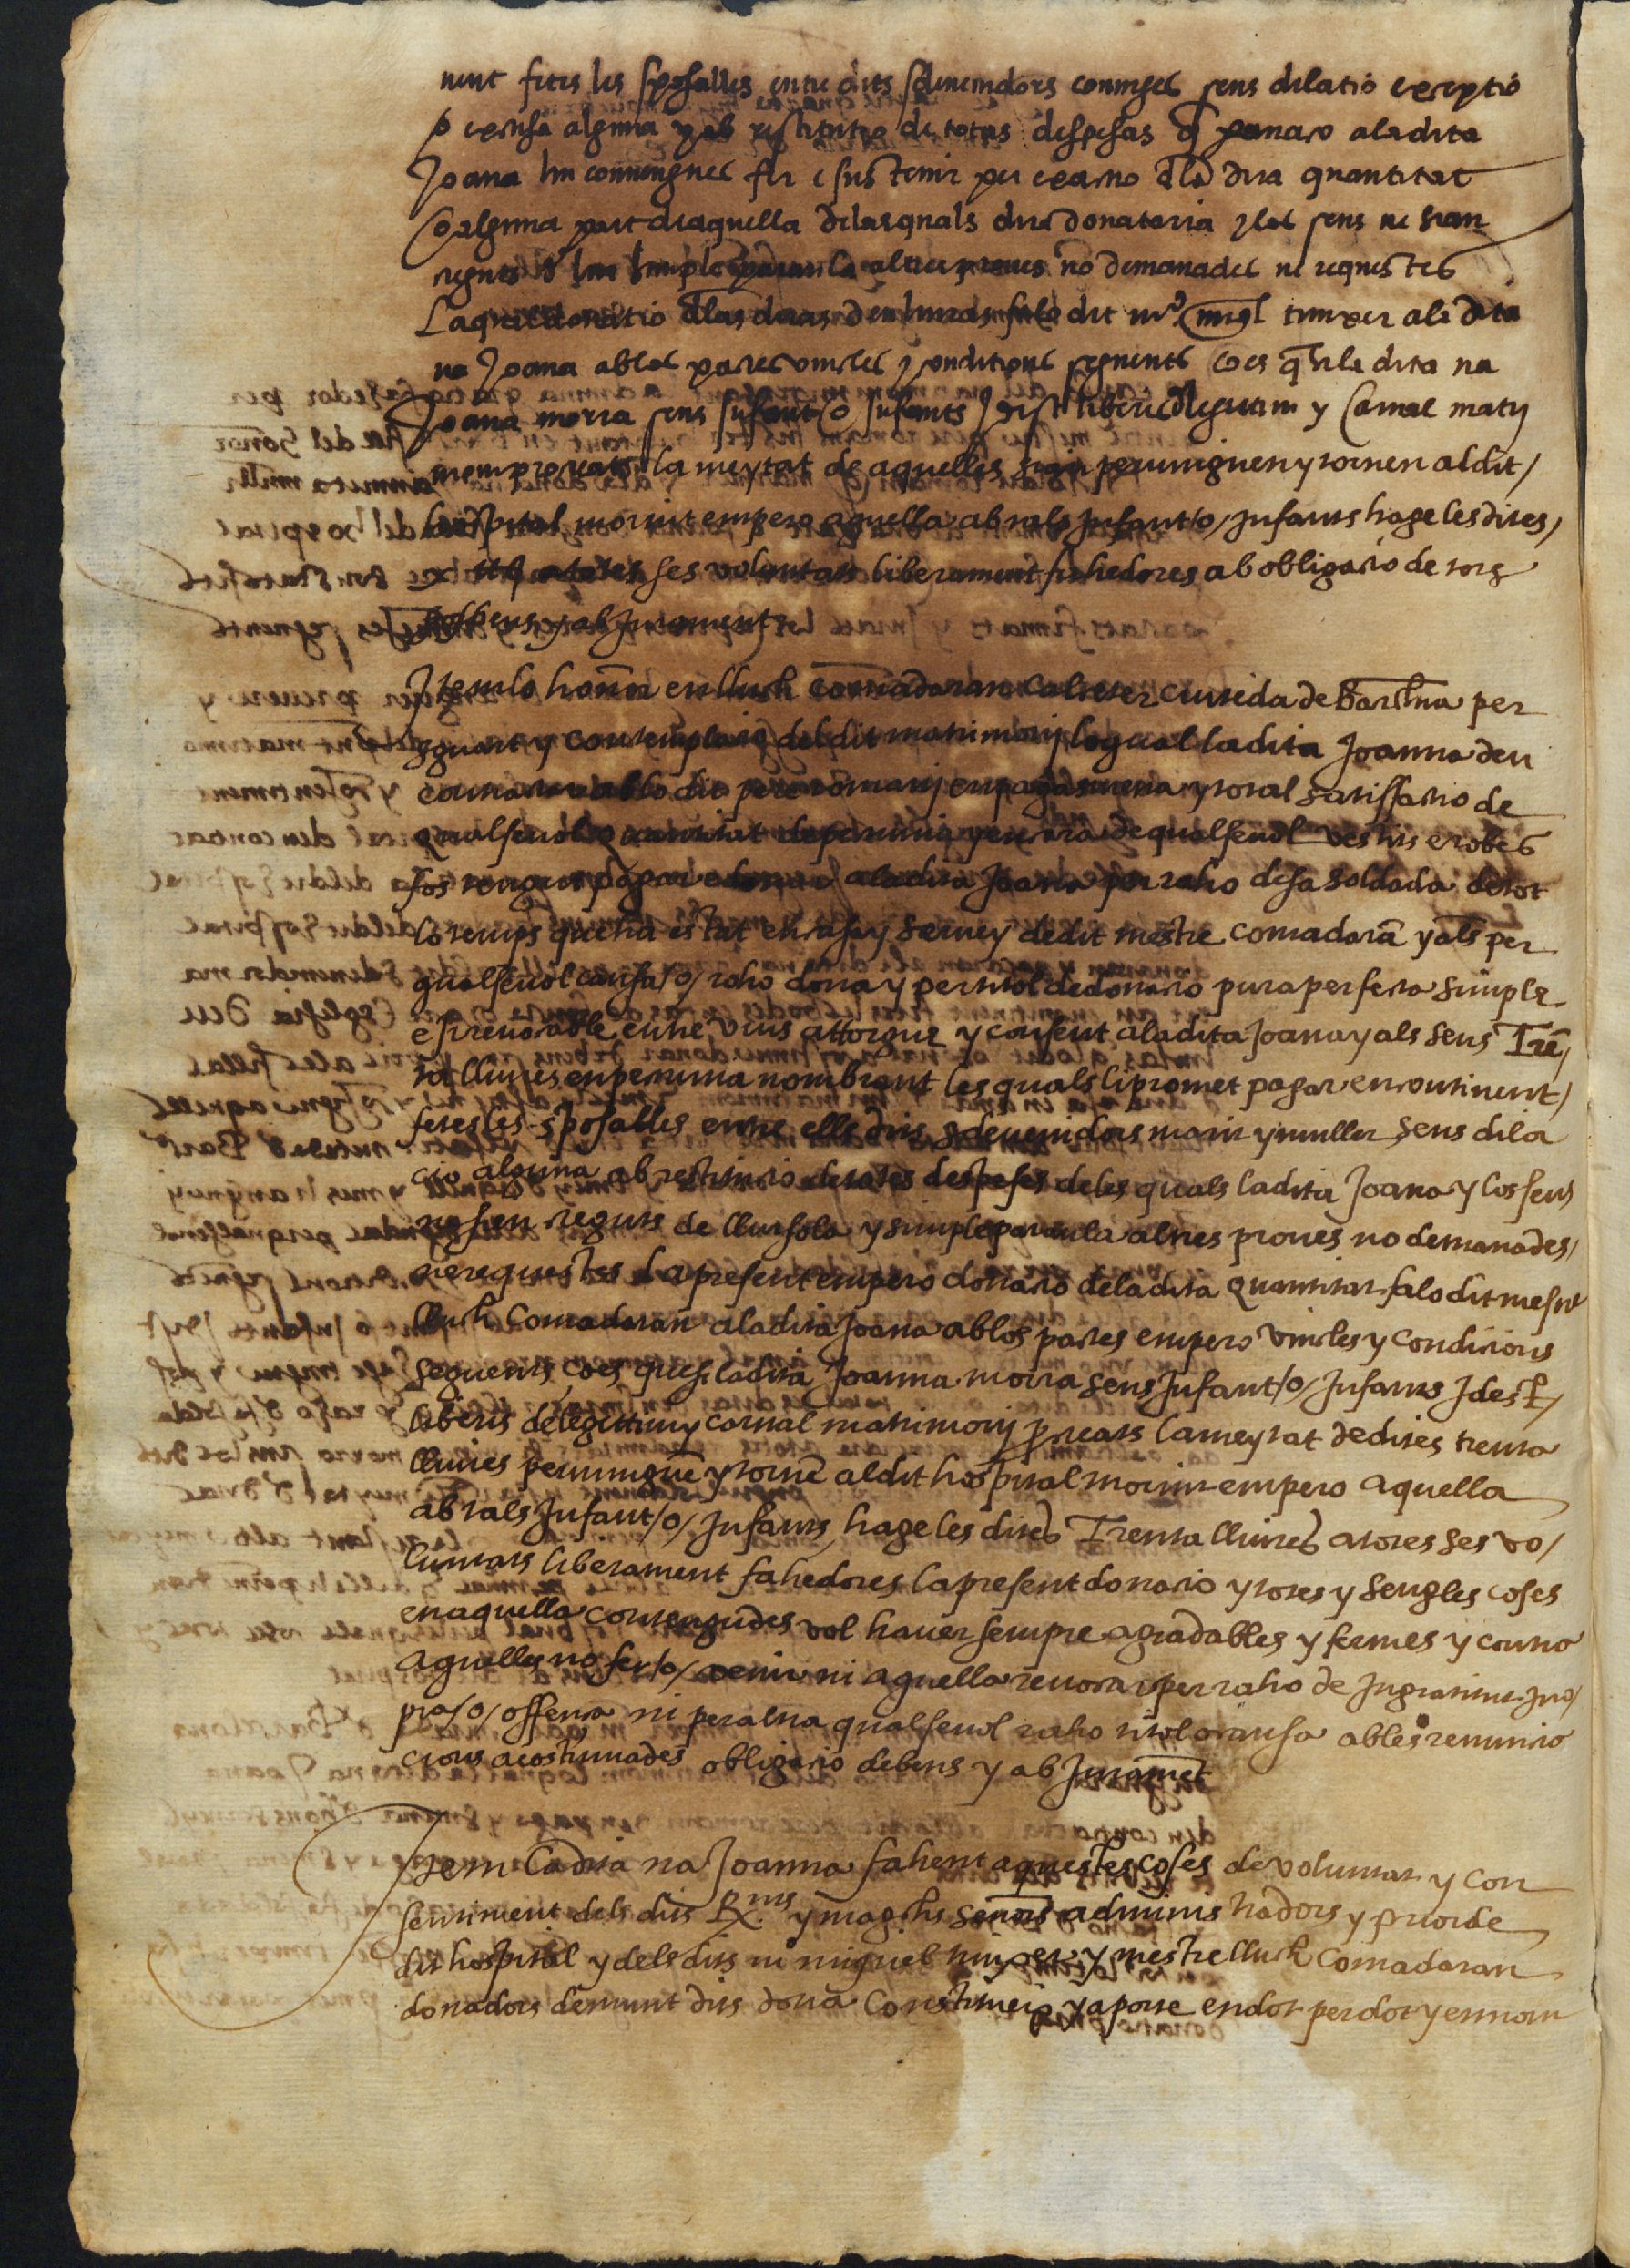 nent fetes les sposalles entre dits sdevenidors conmges sens dilatio exceptio
o excusa alguna y ab restitutio de totas despesas q pgnaro a la dita
Joana lin convingnes fer e sustenir per exactio d la dita quantitat
o alguna part de aquella de las quals dita donataria y los sens ne sian
reguts d lur simple paraula altres proves no demanades ni requestes
La qual donatio d las ditas den liuras fa lo dit mº migl tinxer a la dita
na Joana ab los pactes vincles y conditions seguents ço es q si la dita na
Joana morra sens infant o infants id est liberis de legitim y carnal matrj
monj procreats la meytat de aquelles pervinguen y tornen al dit/
hospital morint empero aquella ab tals Jnfant/o/ Jnfants hage les dites/
a totes ses voluntats liberament fahedores ab obligatio de tots
sos bens y ab Jurament
Jtem lo honor en lluch Comadaran Calseter ciuteda de Barchna per
sguart y contemplatio del dit matrimonj lo qual la dita Joanna deu
contractar ab lo dit pere romanj en paga smena y total satisffatio de
qualsevol quantitat de pecunia y encara de qualsevol vestits e robes
fos tengut pagar e donar a la dita Joana per raho de sa soldada de tot
lo temps que ha estat en casa y servey de dit mestre comadarã y als per
qualsevol causa/o/ raho dona y per titol de donatio pura perfeta simple
e Jrrevocable entre vius attorgue y consent a la dita Joana y als seus Tre/
ta lliures en pecunia nombrant les quals li promet pagar encontinent/
fetes les sposalles entre ells dits sdevenidors marit y muller sens dila
cio alguna ab restitucio de totes despeses de les quals la dita Joana y los seus
ne sien creguts de llur sola y simple paraula altres proves no demanades/
ne requestes La present empero donatio de la dita quantitat fa lo dit mestre
lluch Comadaran a la dita Joana ab los pactes empero vincles y condicions
seguents ço es que si la dita Joanna morra sens Jnfant/o/ Jnfants Jdest/
liberis de legittim y carnal matrimonj procreats la meytat de dites trenta
lliures pervingue y torne al dit hospital morint empero aquella
ab tals Jnfant/o/ Jnfants hage les dites Trenta lliures a totes ses vo/
luntats liberament fahedores la present donatio y totes y sengles coses
en aquella contengudes vol haver sempre agradables y fermes y contra
aquelles no fer/o/ venir ni aquella revocar per raho de Jngratitut Jno/
pia/o/ offensa ni per altra qualsevol raho titol o causa ab les renuncia
cions acostumades obligatio de bens y ab Jurament
Jtem la dita na Joanna fahent aquestes coses de voluntat y con
sentiment dels dits Rx.ms y magchs senors administradors y prior de
dit hospital y dels dits mº miquel tinxer y mestre lluch Comadaran
donadors demunt dits dona constitueix y aporte en dot per dot y en nom